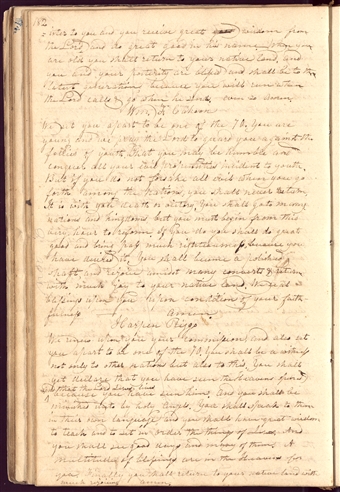 182
-ister to you and you receive great wisdom from
the Lord, and do great good in his name. When you
are old you shall return to your native land, and
you and your posterity are blessed and shall be to the
latest generation because you will run when
the Lord calls & go when he sends even so Amen.
Wm. F. Cahoon
We set you apart to be one of the 70. You are
young and we pray the Lord to guard you against the
follies of youth that you may be humble and
conquer all your evil propensities incident to youth.
But if you do not forsake all evil when you go
forth among the Nations, you shall never return.
It is with you death or victory. You shall go to many
nations and kingdoms but you must begin from this
very hour to reform. If you do you shall do great
good and bring to pass much righteousness, because you
have desired it. You shall become a polished
shaft, and rejoice amidst many converts & return
with much joy to your native land. We seal
blessings upon you upon condition of your faith-
fulness Amen
Harpen Riggs
We confirm upon you your commission and also set
you apart to be one of the 70. You shall be a witness
not only to other nations but also to this. You shall
yet declare that you have seen the heavens opened
& that the Lord Jesus lives
because you have seen him. And you shall be
ministered unto by holy Angels. You shall speak to them
in their own language and you shall have great wisdom
to teach and to set in order the things of
you shall see good things and many of them. A
multiplicity of blessings are in the heavens for
you. You shall return to your native land with
much rejoicing Amen